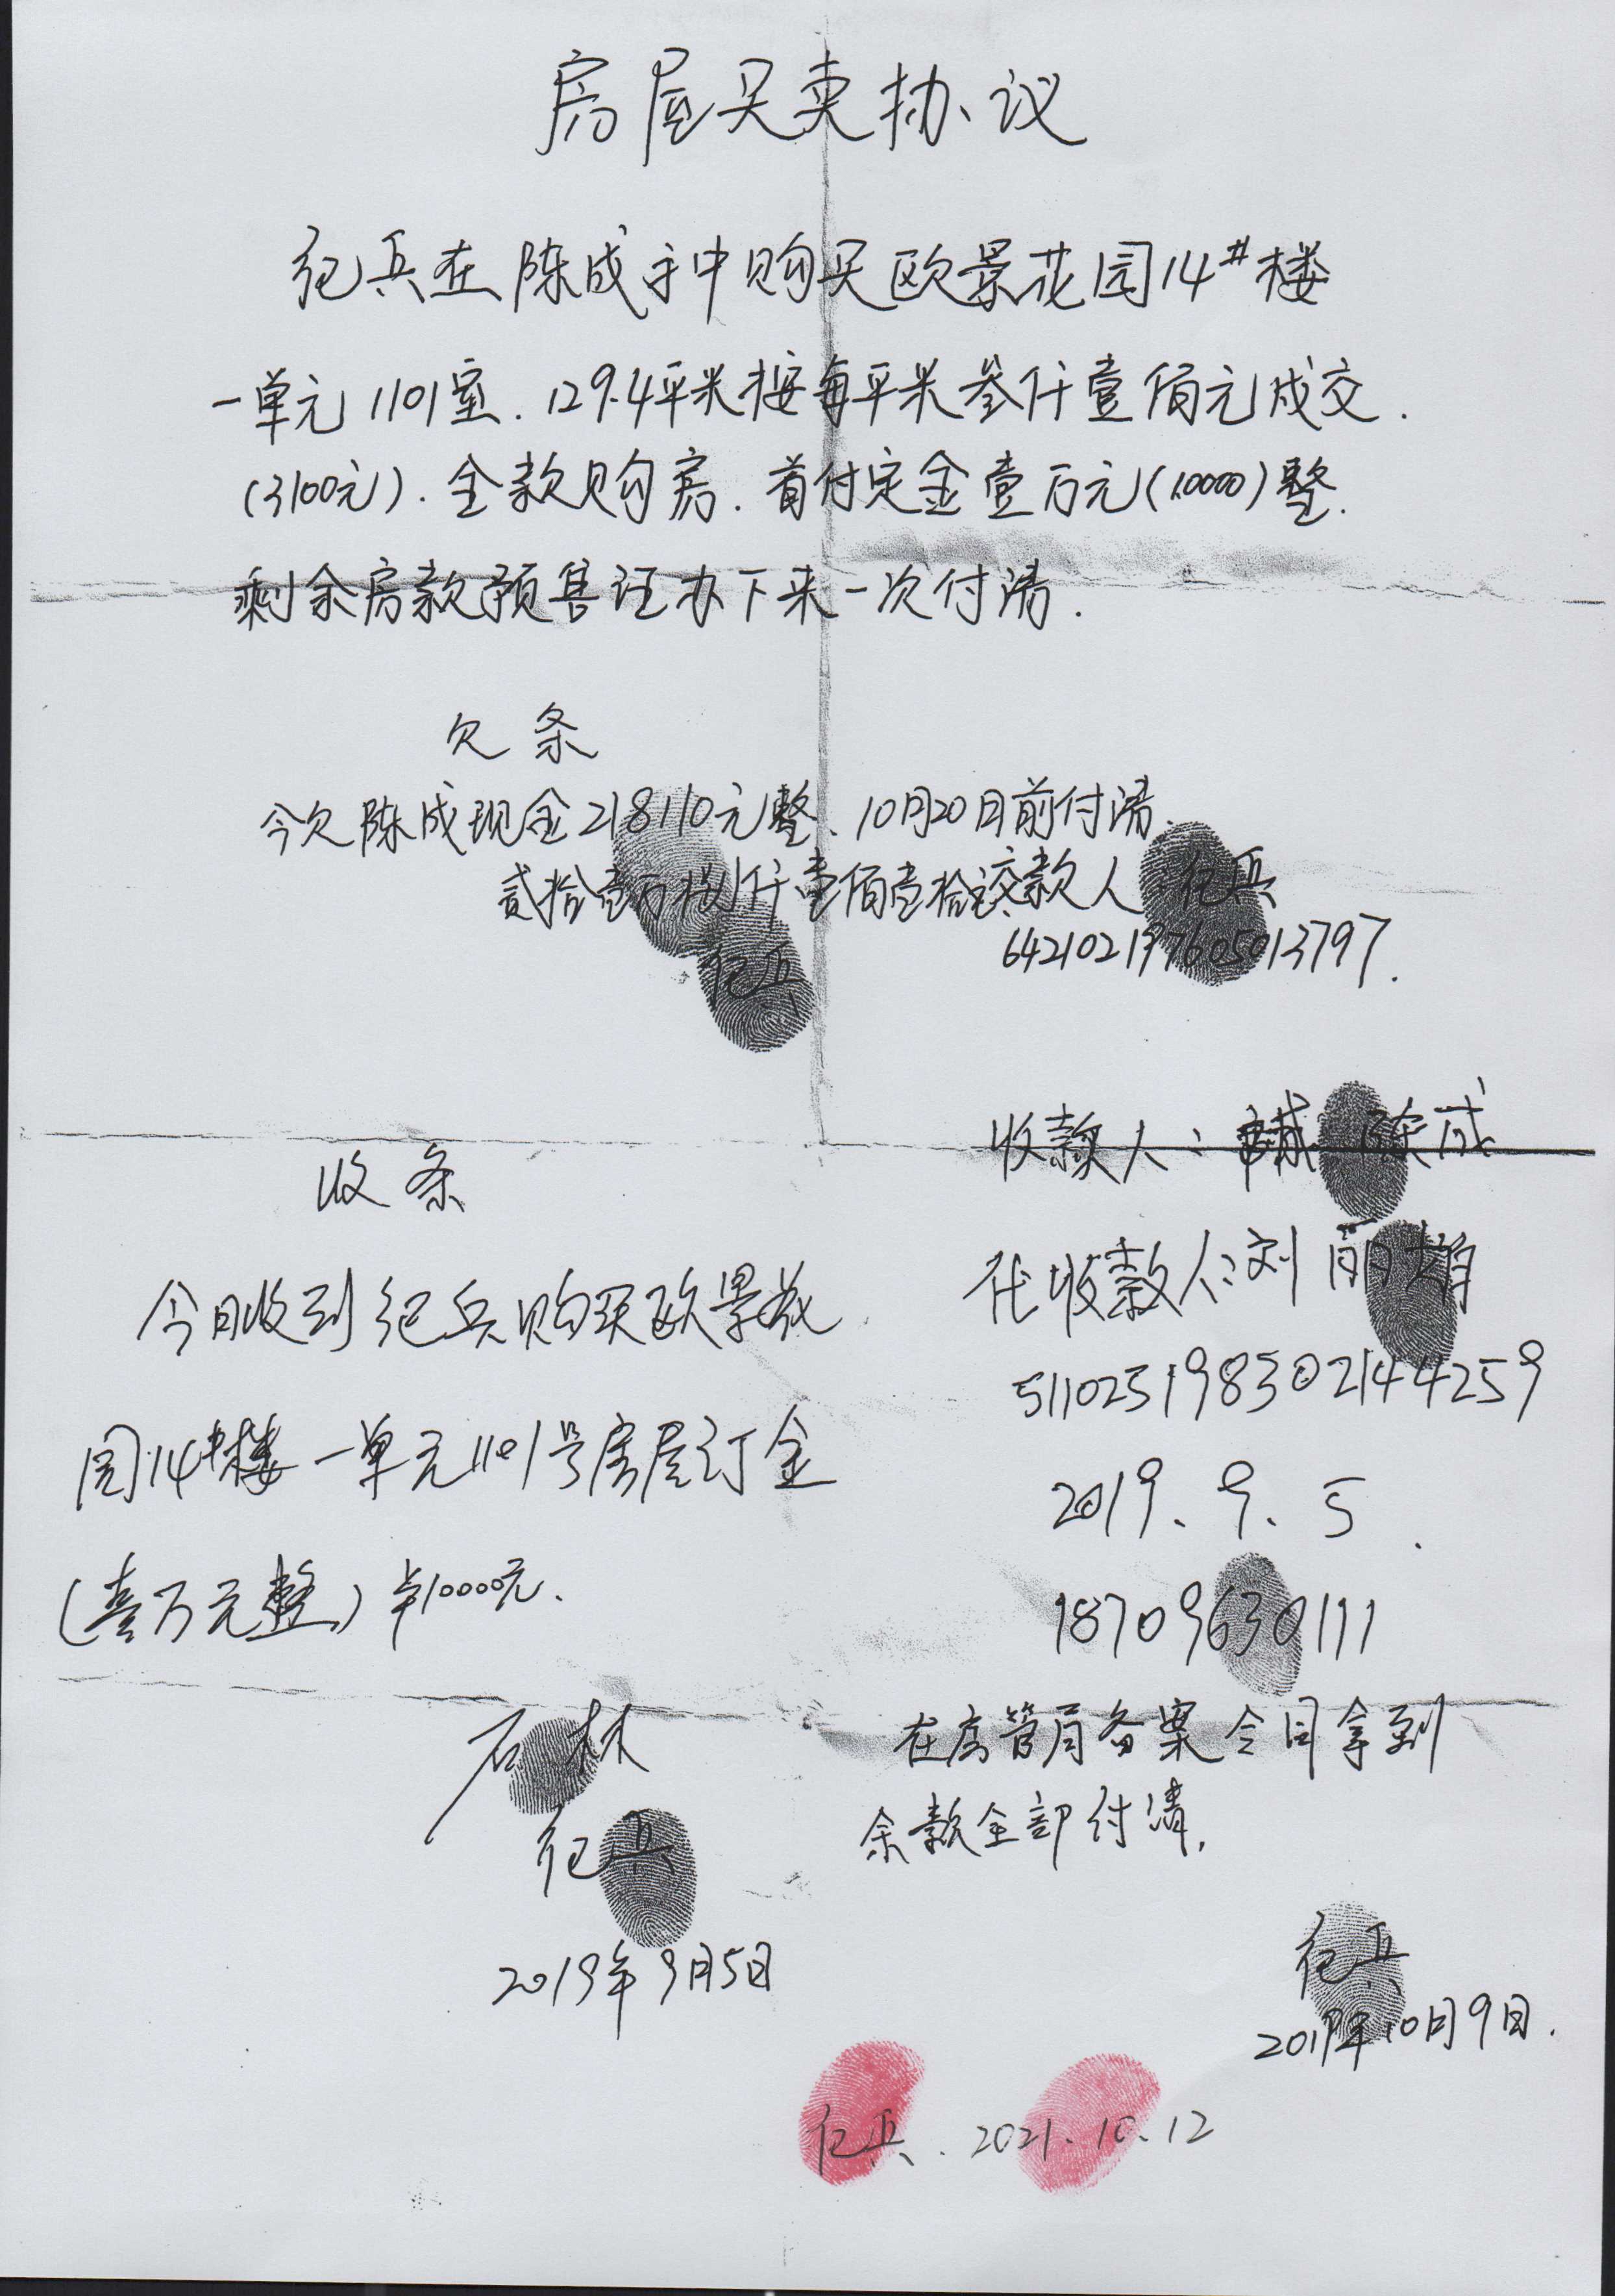 房屋买卖协议
纪兵在陈成手中购买欧景花园14#楼
一单元1101室.129.4平米按每平米叁仟壹佰元成交.
(3100元).全款购房.首付定金壹万元(10000)整.
剩余房款预售证办下来一次付清.
欠条
今欠陈成现金218110元整、10月20日前付清.
贰拾壹万捌仟壹佰壹拾 交款人 纪兵
纪兵
642102197605013797.
收款人: 陈成
收条
代收款人:刘丽娟
今日收到纪兵购买欧景花
511025198302144259
园14#楼一单元1101号房屋订金
2019.9.5.
(壹万元整)¥10000元.
18709630111
石林
在房管局备案合同拿到
余款全部付清.
纪兵
纪兵
2019年9月5日
2019年10月9日.
纪兵.2021.10.12